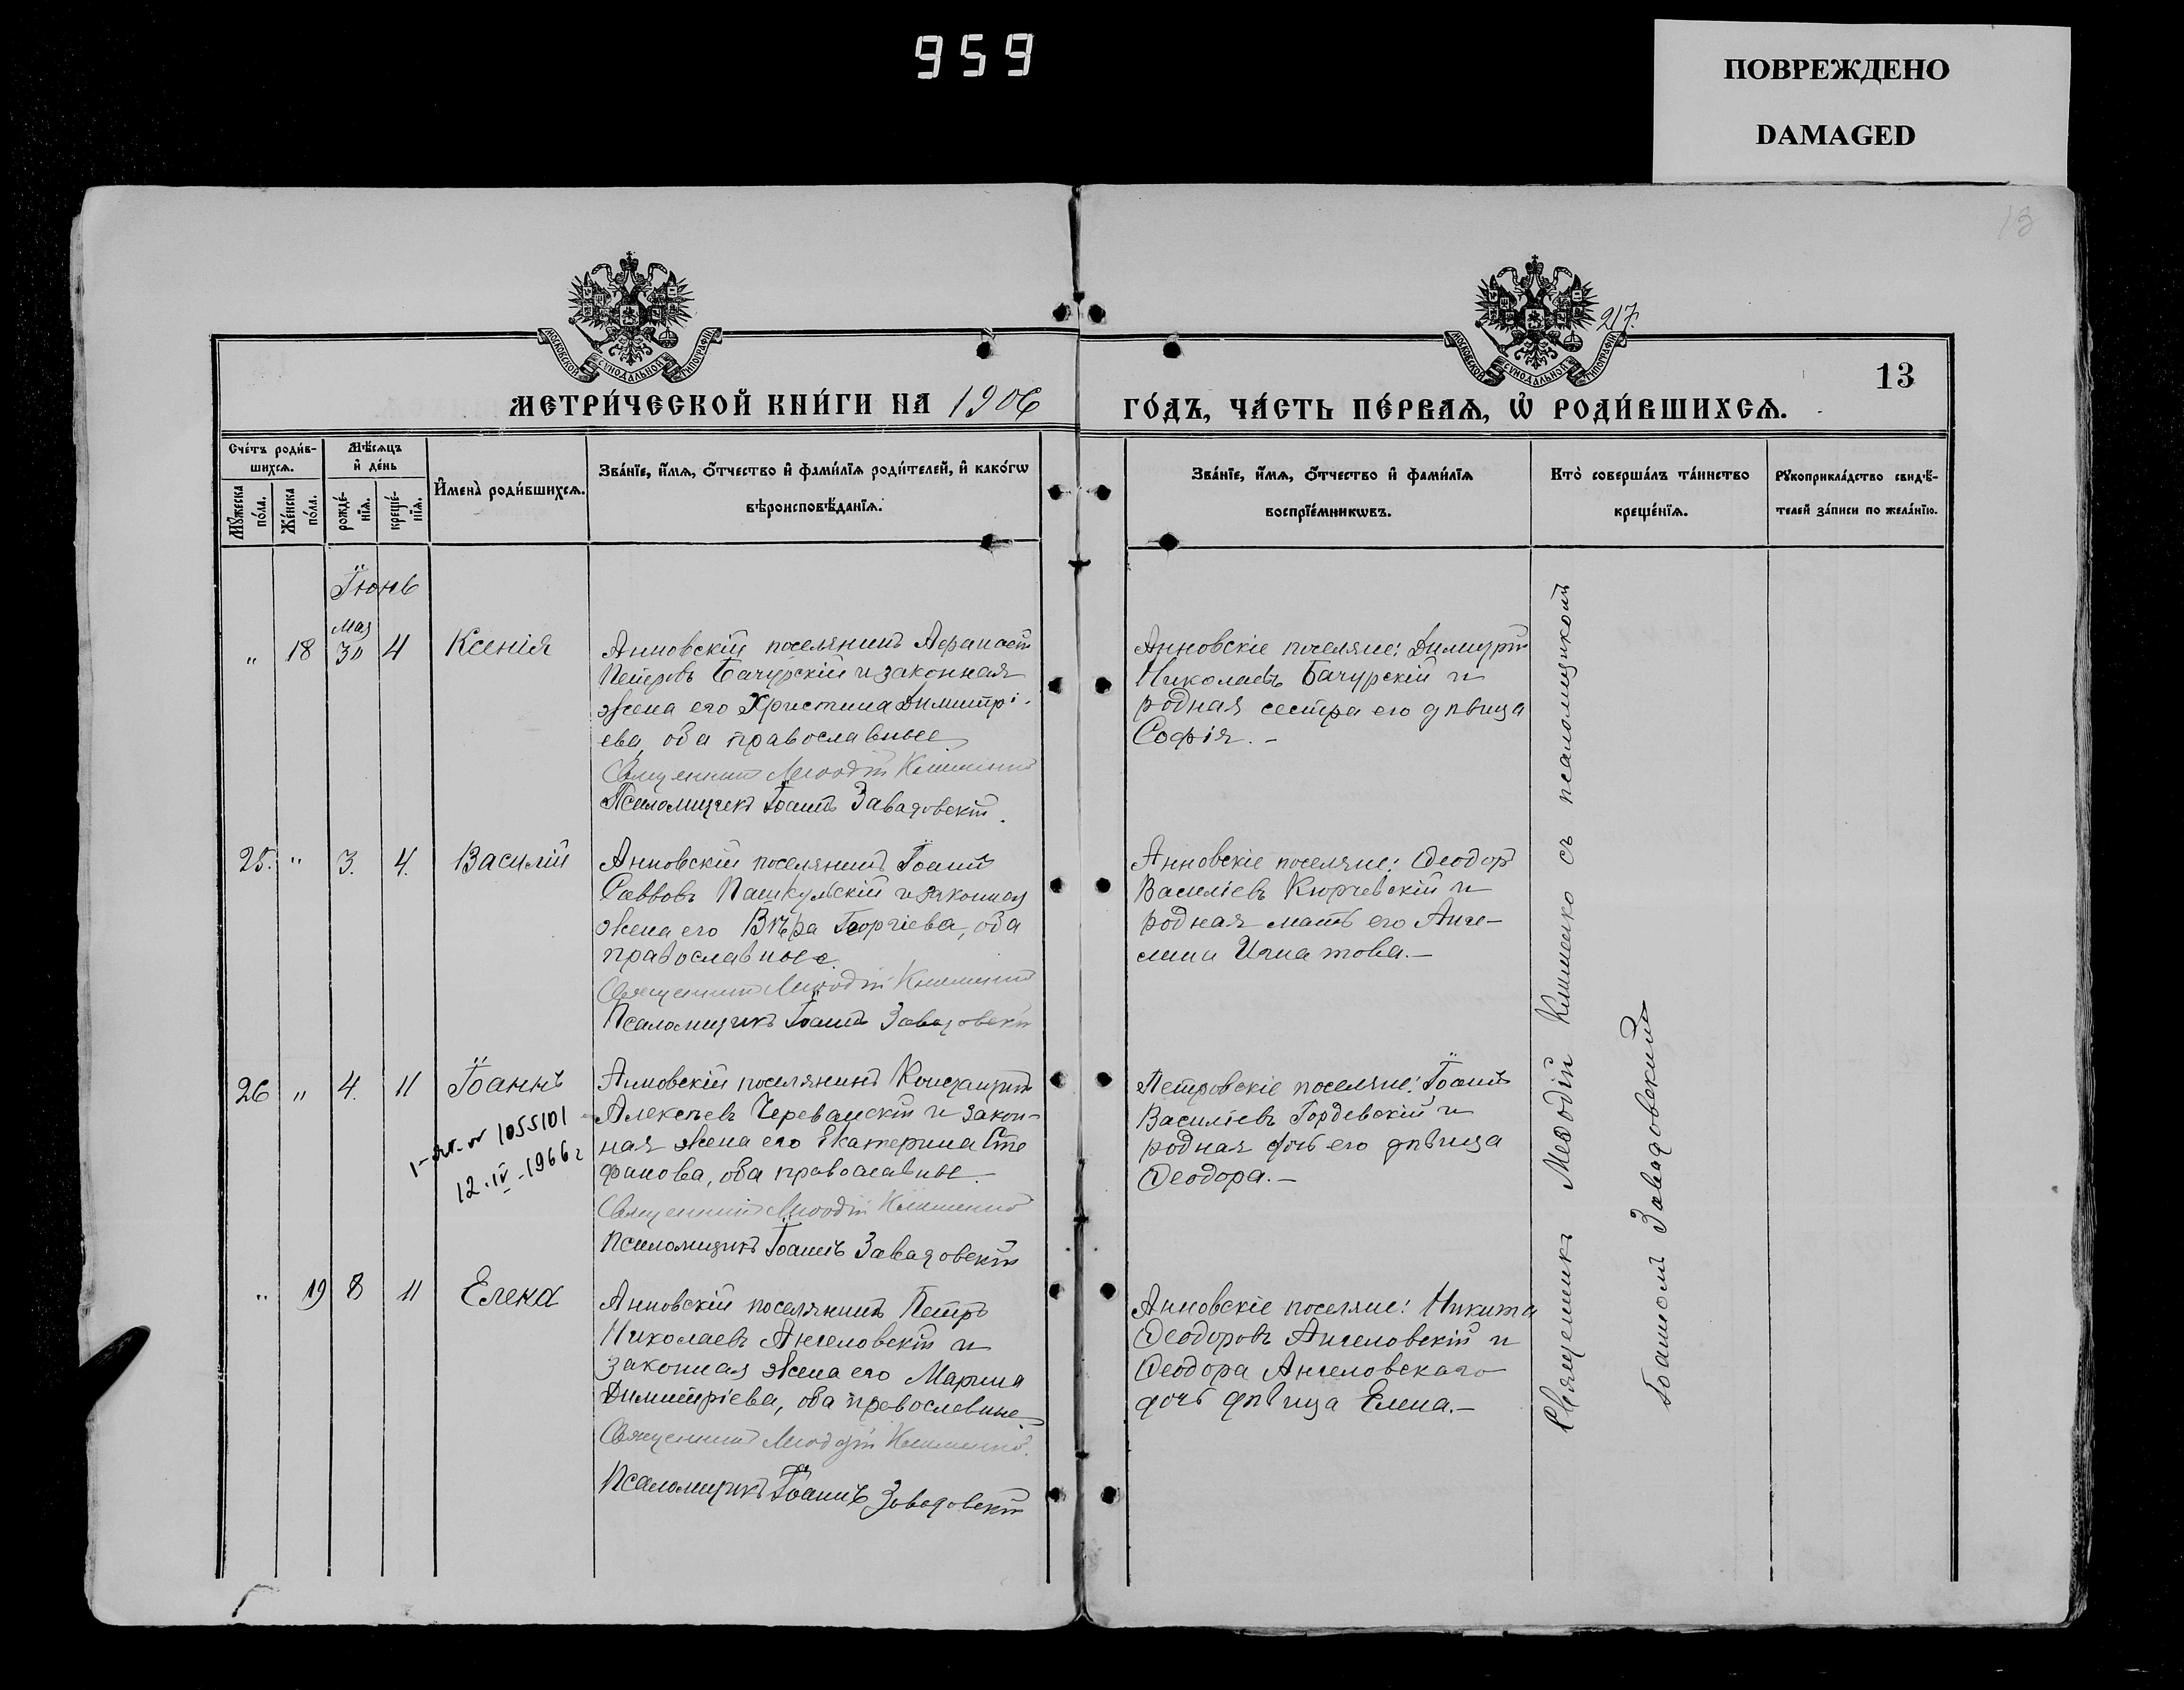 959
ПОВРЕЖДЕНО
DAMAGED
13
217.
13
МОСКОВСКОЙ СѴНОДАЛЬНОЙ ТИПОГРАФІИ
МОСКОВСКОЙ СѴНОДАЛЬНОЙ ТИПОГРАФІИ
МЕТРИ́ЧЕСКОЙ КНИ́ГИ НА 1906
ГО́ДЪ, ЧА́СТЬ ПЕ́РВАѦ, Ѡ҆ РОДИ́ВШИХСѦ.
Сче́тъ роди́в-
шихсѧ.
Мꙋ́жеска
по́ла.
Же́нска
по́ла.
Мѣ́сѧцъ
и҆ де́нь
рожде́-
нїѧ.
креще́-
нїѧ.
И҆мена̀ роди́вшихсѧ.
Зва́нїе, и҆́мѧ, ѻ҆́тчество и҆ фами́лїѧ роди́телей, и҆ како́гѡ
вѣроисповѣ́данїѧ.
Зва́нїе, и҆́мѧ, ѻ҆́тчество и҆ фами́лїѧ
воспрїе́мникѡвъ.
Кто̀ соверша́лъ та́инство
креще́нїѧ.
Рꙋкоприкла́дство свидѣ́-
телей за́писи по жела́нїю.
Іюнь
мая
" 18 30 4 Ксенія
Анновскій поселянинъ Афанасій
Петровъ Бачурскій и законная
жена его Христина Димитрі-
ева, оба православные
Священникъ Меѳодій Клименко
Псаломщикъ Іоаннъ Завадовскій.
Анновскіе поселяне: Димитрій
Николаевъ Бачурскій и
родная сестра его дѣвица
Софія.-
25. " 3. 4. Василій
Анновскій поселянинъ Іоаннъ
Саввовъ Пашкульскій и законная
жена его Вѣра Георгіева, оба
православные.
Священникъ Меѳодій Клименко
Псаломщикъ Іоаннъ Завадовскій
Анновскіе поселяне: Ѳеодоръ
Василіевъ Кюрчевскій и
родная мать его Анге-
лина Игнатова.-
26 " 4. 11 Іоаннъ
1055101
12.IV-1966 г
Анновскій поселянинъ Констан­тинъ
Алексѣевъ Череванскій и закон-
ная жена его Екатерина Сте
фанова, оба православные.
Священникъ Меѳодій Клименко
Псаломщикъ Іоаннъ Завадовскій
Петровскіе поселяне: Іоаннъ
Василіевъ Гордевскій и
родная дочь его дѣвица
Ѳеодора.-
" 19 8 11 Елена
Анновскій поселянинъ Петръ
Николаевъ Ангеловскій и
законная жена его Марина
Димитріева, оба православные.
Священникъ Меѳодій Клименко.
Псаломщикъ Іоаннъ Завадовскій
Анновскіе поселяне: Никита
Ѳеодоровъ Ангеловскій и
Ѳеодора Ангеловскаго
дочь дѣвица Елена.-
Священникъ Меѳодій Клименко съ псаломщикомъ
Іоанномъ Завадовскимъ